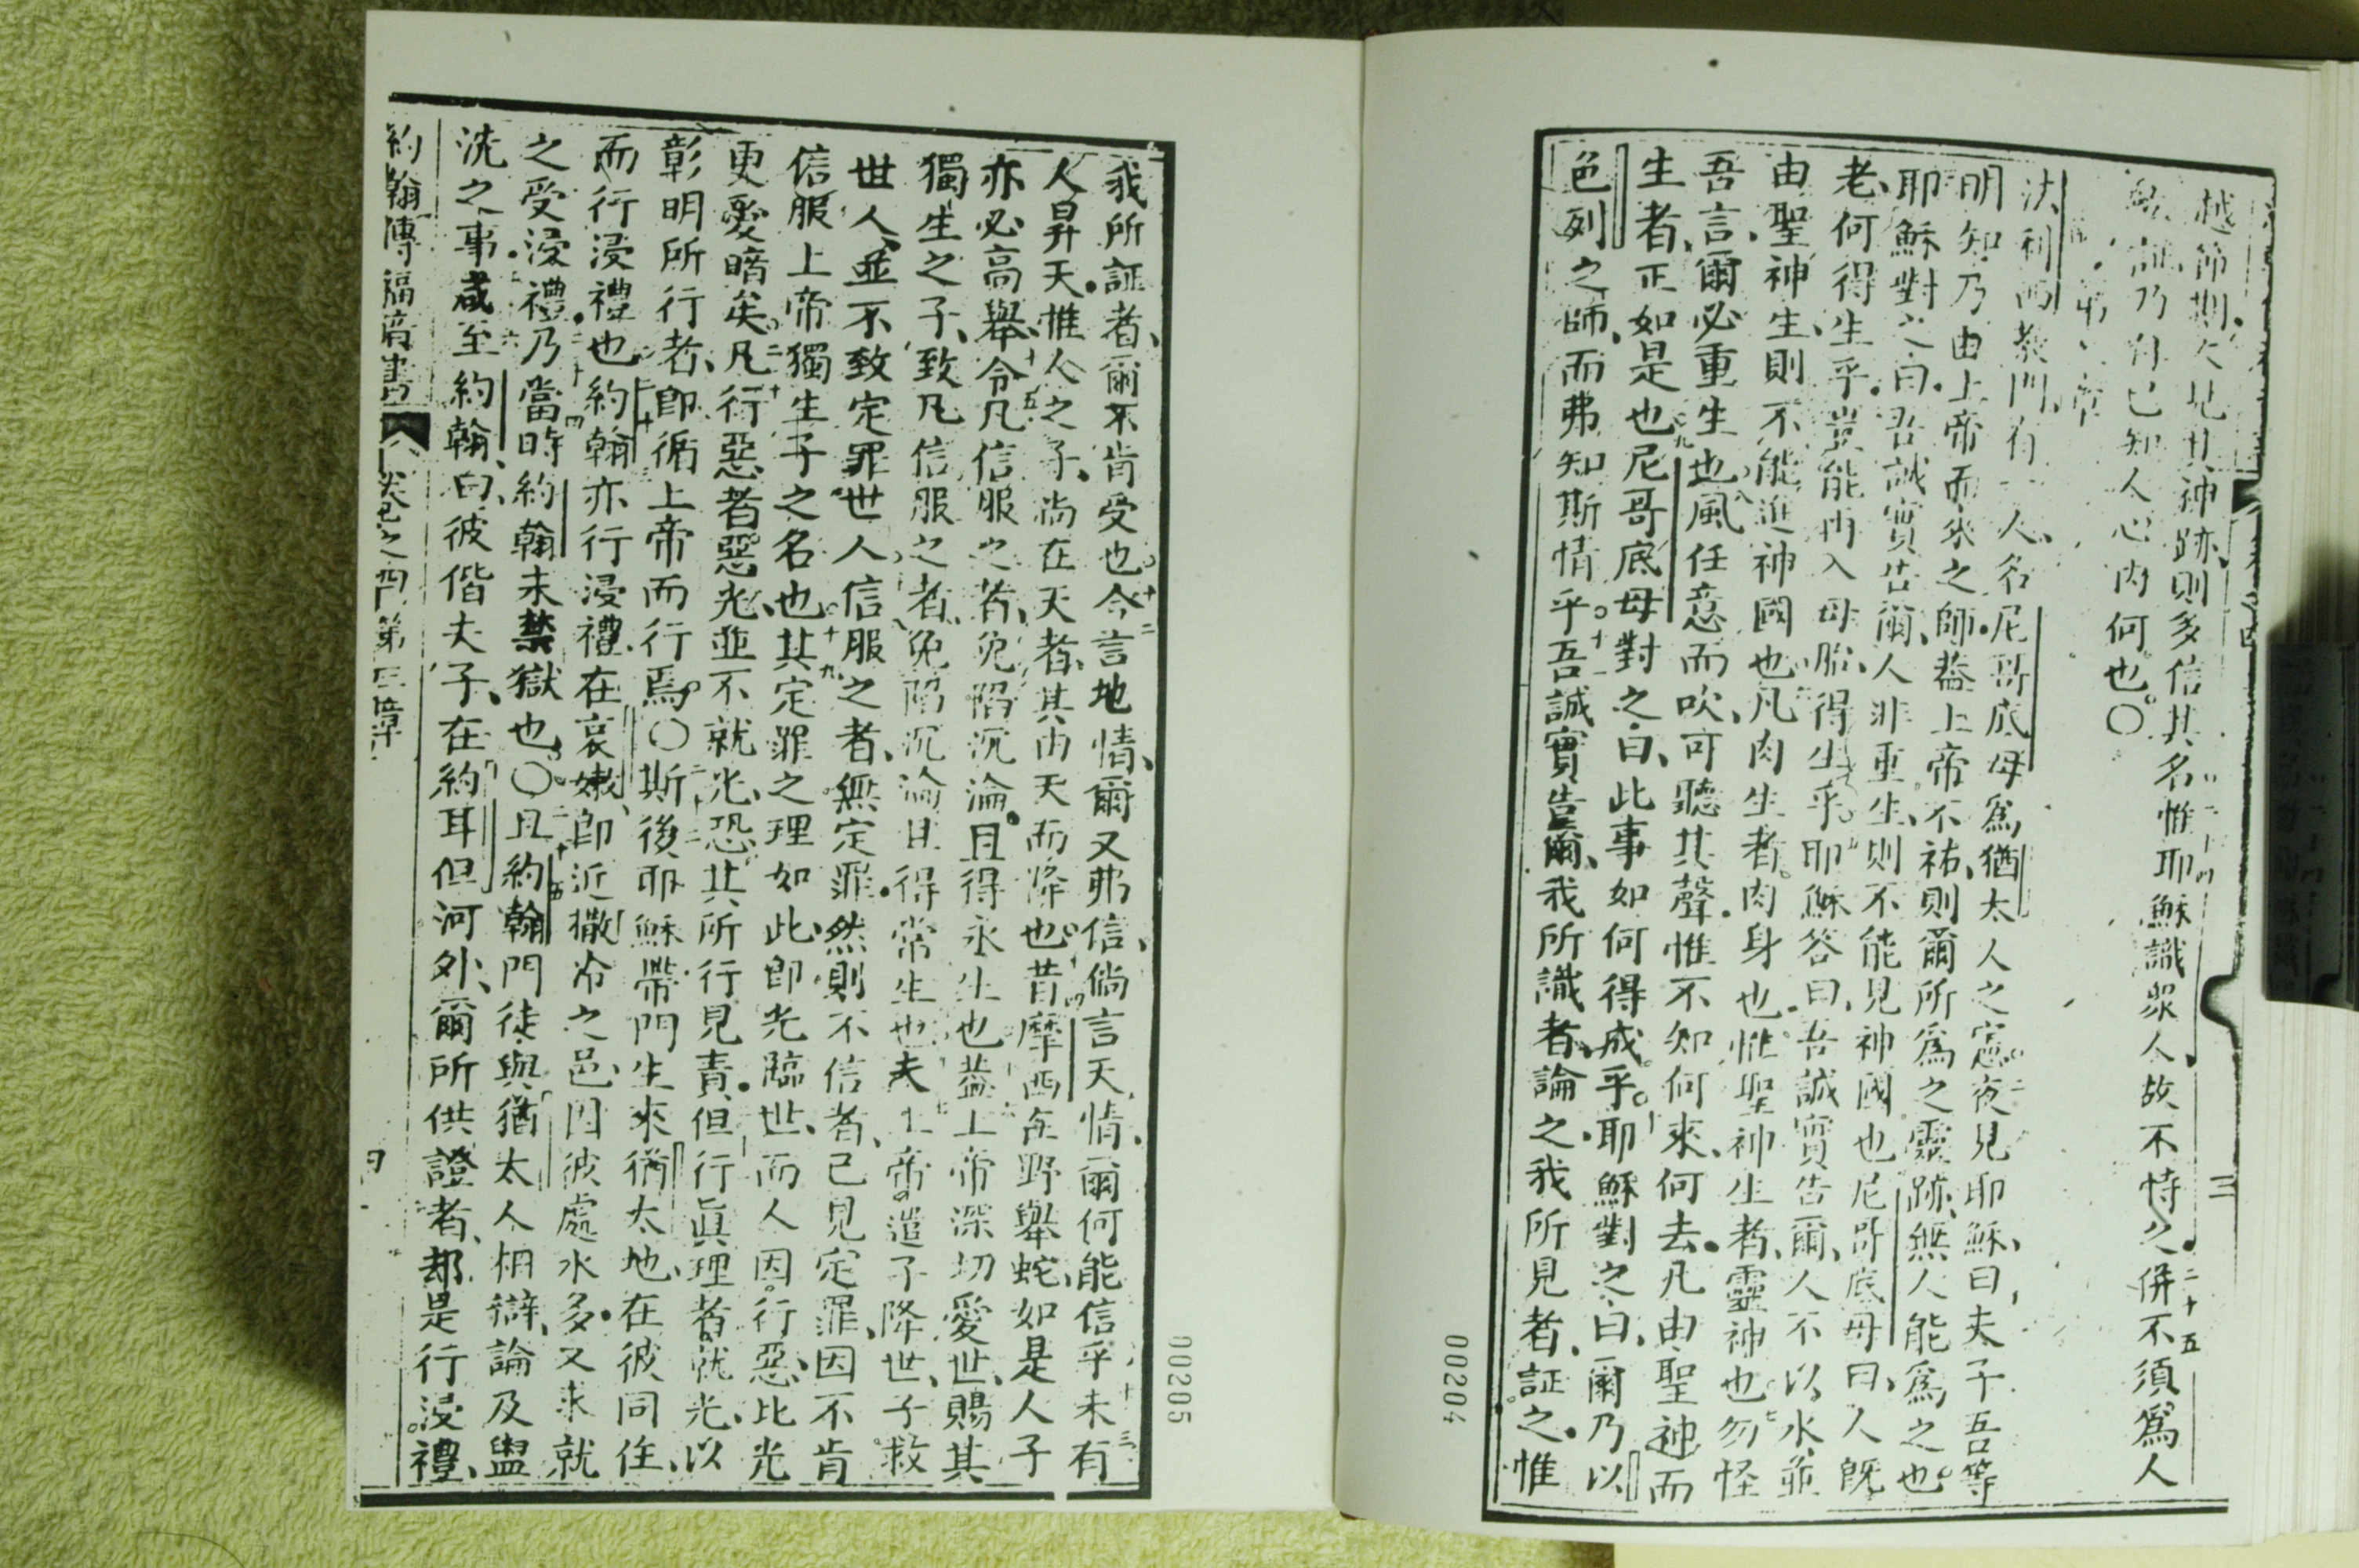 越節期人見其神跡則多信其名惟耶穌識眾人故不恃之二十五併不須爲人
証乃自已知人心內何也○
第三章
法利西教門有一人名尼哥底母爲猶太人之憲夜見耶穌曰夫子吾等
明知乃由上帝而來之師蓋上帝不祐則爾所爲之靈跡無人能爲之也
耶穌對之曰吾誠實告爾人非重生則不能見神國也尼哥底母曰人既
老何得生乎豈能冉入母胎得生乎耶穌答曰吾誠實告爾人不以水並
由聖神生則不能進神國也凡肉生者肉身也惟聖神生者靈神也勿怪
吾言爾必重生也風任意而吹可聽其聲惟不知何來何去凡由聖神而
生者正如是也九尼哥底母對之曰此事如何得成乎耶穌對之曰爾乃以
色列之師而弗知斯情乎十吾誠實告爾我所識者論之我所見者証之惟
00204
我所証者爾不肯受也十二今言地情爾又弗信倘言天情爾何能信乎十三未有
人昇天惟人之子尚在天者其由天而降也十四昔摩西在野舉蛇如是人子
亦必高舉十五令凡信服之者免陷沉淪且得永生也蓋上帝深切愛世賜其
獨生之子致凡信服之者免陷沉淪且得常生也夫上帝遣子降世子救
世人並不致定罪世人信服之者無定罪然則不信者已見定罪因不肯
信服上帝獨生子之名也十九其定罪之理如此即光臨世而人因行惡比光
更愛暗矣二十凡行惡者惡光並不就光恐其所行見責但行眞理者就光以
彰明所行者即循上帝而行焉○斯後耶穌帶門生來猶太地在彼同住
而行浸禮也約翰亦行浸禮在哀嫩即近撒冷之邑因彼處水多又來就
之受浸禮乃二十四當時約翰未禁獄也○二十五且約翰門徒與猶太人相辯論及盥
洗之事咸至約翰曰彼偕夫子在約耳但河外爾所供證者却是行浸禮
約翰傳福音書 卷之四 第三章 四
00205